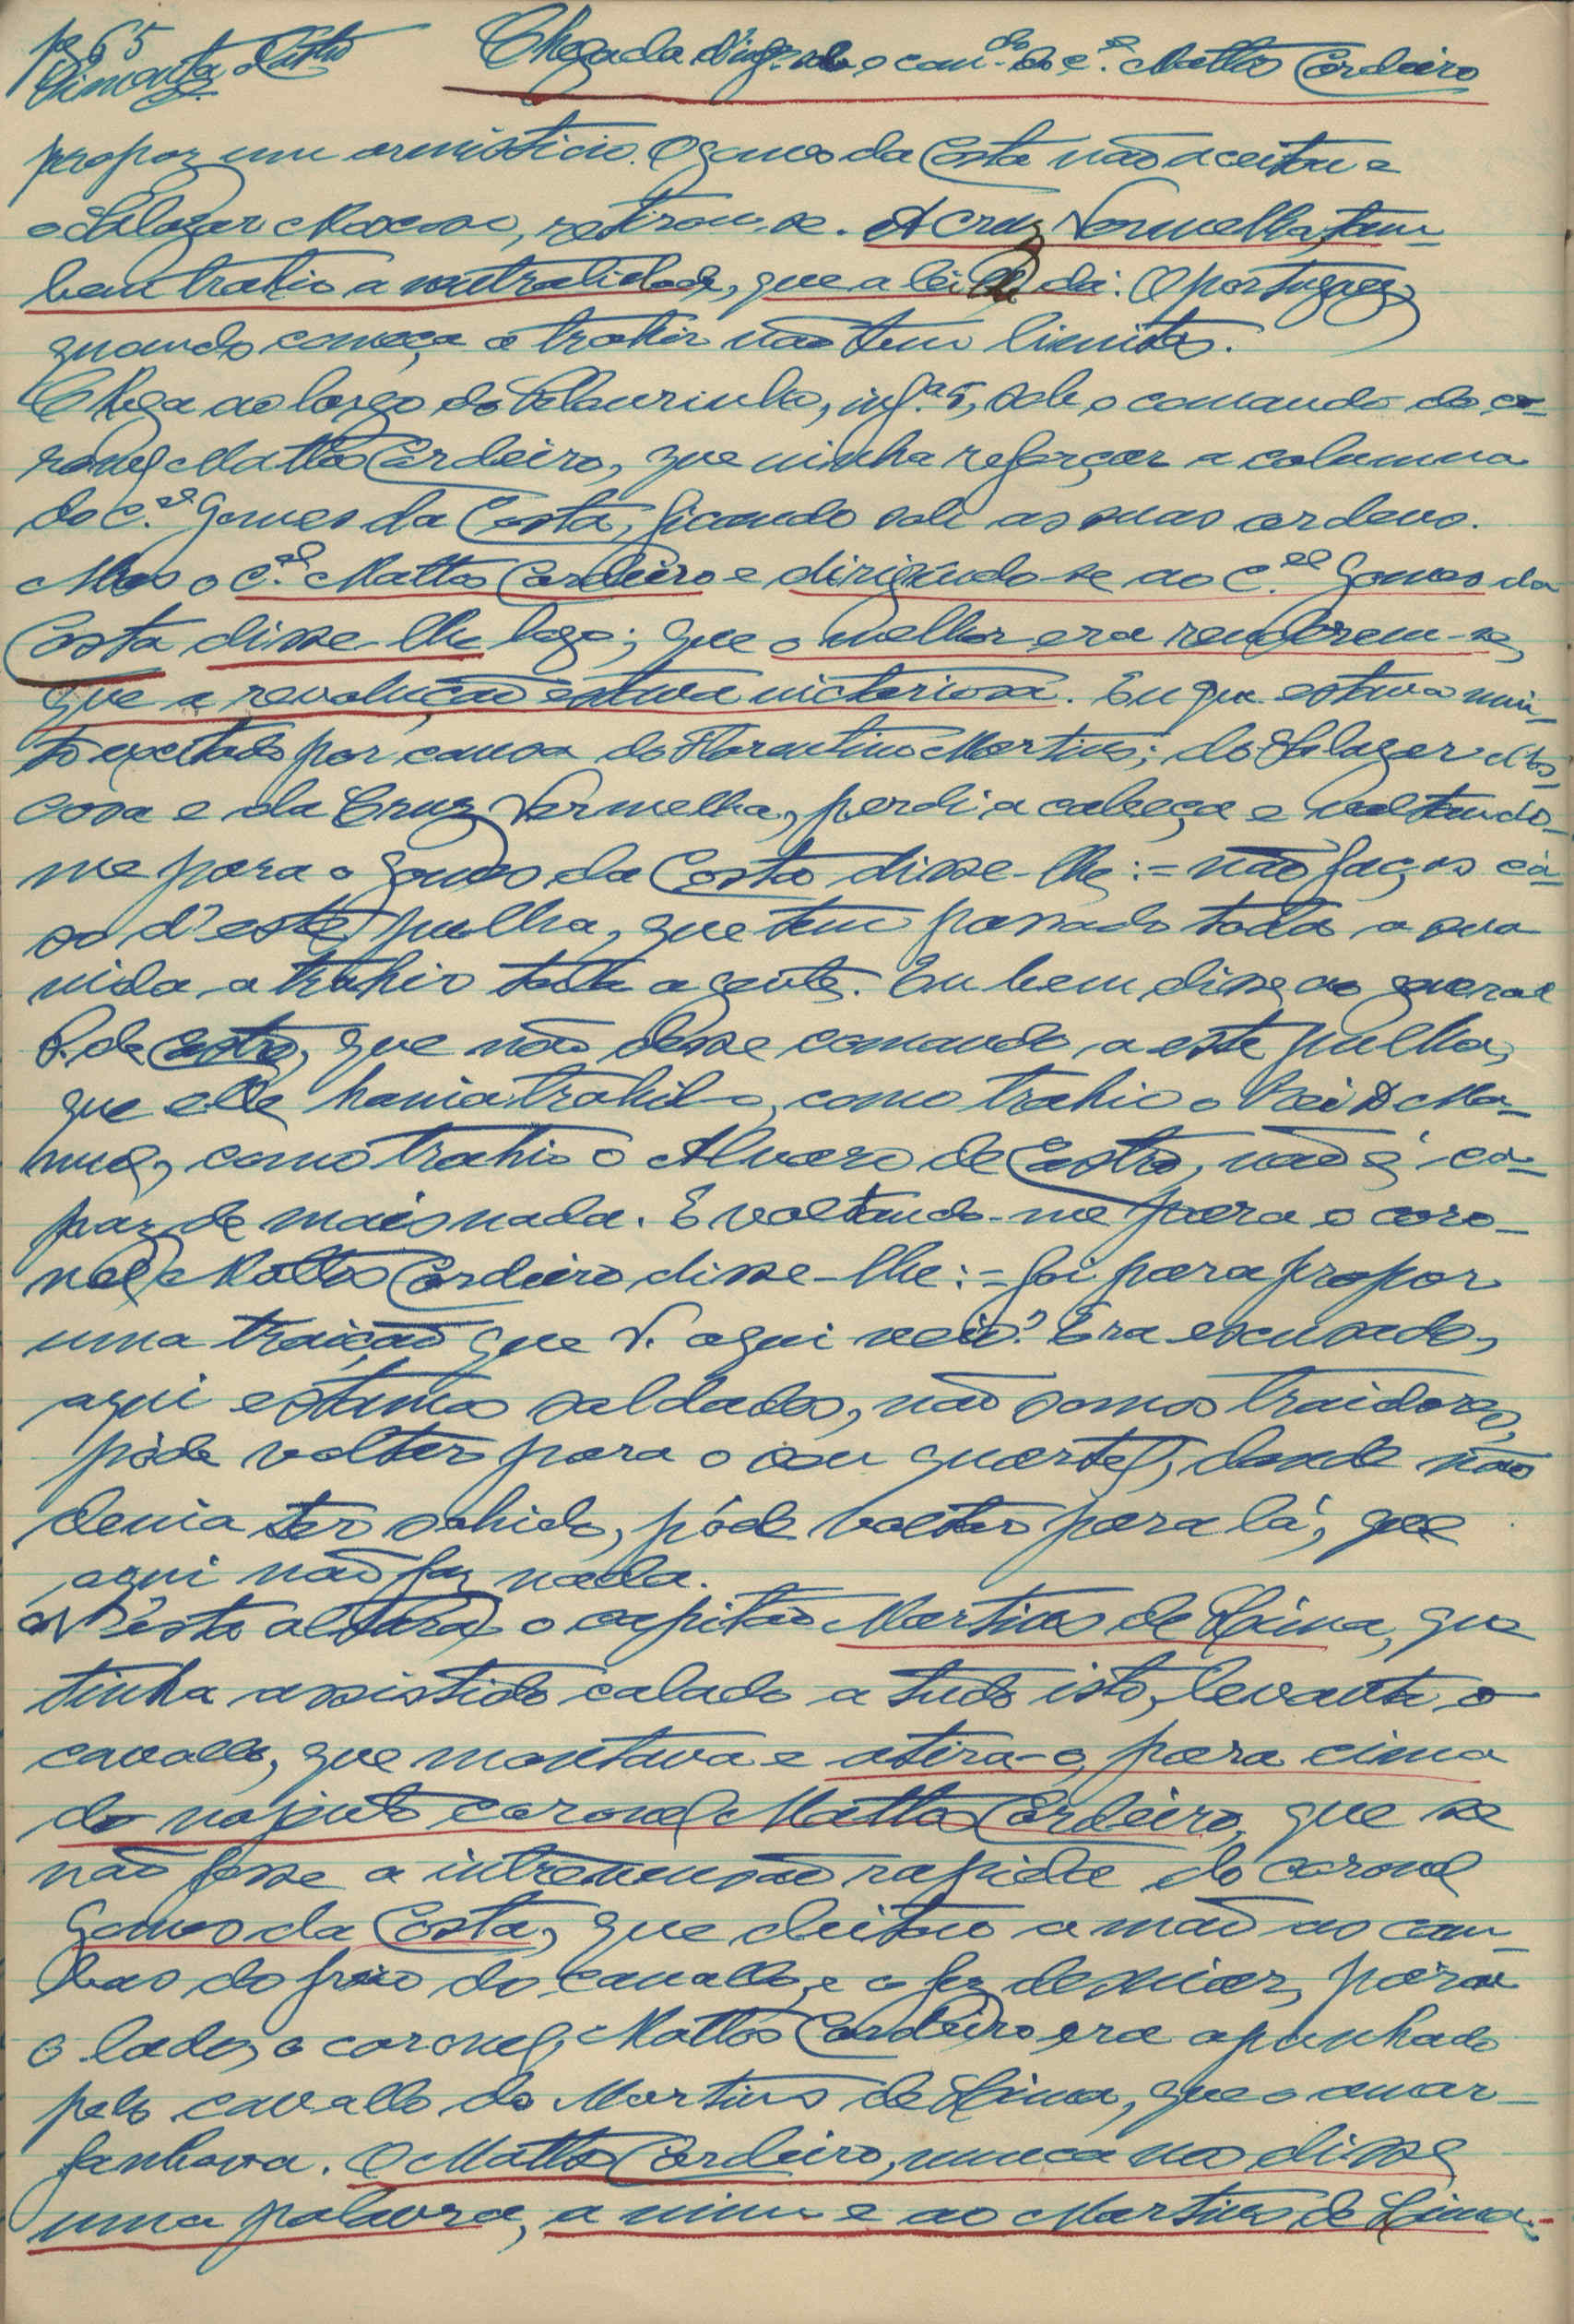 pg 65 Chegada d'inf.5 sob o com.do do c.el Mattos Cordeiro
Pimenta de Castro
propoz um armisticio. O Gomes da Costa não aceitou e
o Salazar Moscoso, retirou-se. A Cruz Vermelha, tam-
bem trahio a neutralidade, que a lei lhe dá. O portuguez,
quando começa a trahir não tem limites.
Chega ao largo do Pelourinho, inf.a 5, sob o comando do co-
ronel Mattos Cordeiro, que vinha reforçar a columna
do c.el Gomes da Costa, ficando sob as suas ordens.
Mas o c.el Mattos Cordeiro e dirigindo-se ao c.el Gomes da
Costa disse-lhe logo; que o melhor era renderem-se,
que a revolução estava victoriosa. Eu que estava mui-
to excitado por causa do Florentino Martins; do Salazar Mos-
coso e da Cruz Vermelha, perdi a cabeça e voltando-
me para o Gomes da Costa disse-lhe:= não faças ca-
so d'este pulha, que tem passado toda a sua
vida a trahir toda a gente. Eu bem disse ao general
P. de Castro, que não désse comando a este pulha,
que elle havia trahil-o, como trahio o Rei D Ma-
nuel, como trahio o Alvaro de Castro, não é ca-
paz de mais nada. E voltando-me para o coro-
nel Mattos Cordeiro disse-lhe:= foi para propor
uma traição que V. aqui veio? Era escusado,
aqui estamos soldados, não somos traidores,
póde voltar para o seu quartel, donde não
devia ter sahido, póde voltar para lá, que
aqui não faz nada.
N'esta altura o capitão Martins de Lima, que
tinha assistido calado a tudo isto, levanta o
cavallo, que montava e atira-o para cima
do nojento coronel Mattos Cordeiro, que se
não fosse a intrevensão rapida do coronel
Gomes da Costa, que deitou a mão as cam-
bas do freio do cavallo, e o fez desviar, para
o lado, o coronel Mattos Cordeiro era apanhado
pelo cavallo do Martins de Lima, que o amar-
fanhava. O Mattos Cordeiro, nunca nos disse
uma palavra, a mim e ao Martins de Lima.